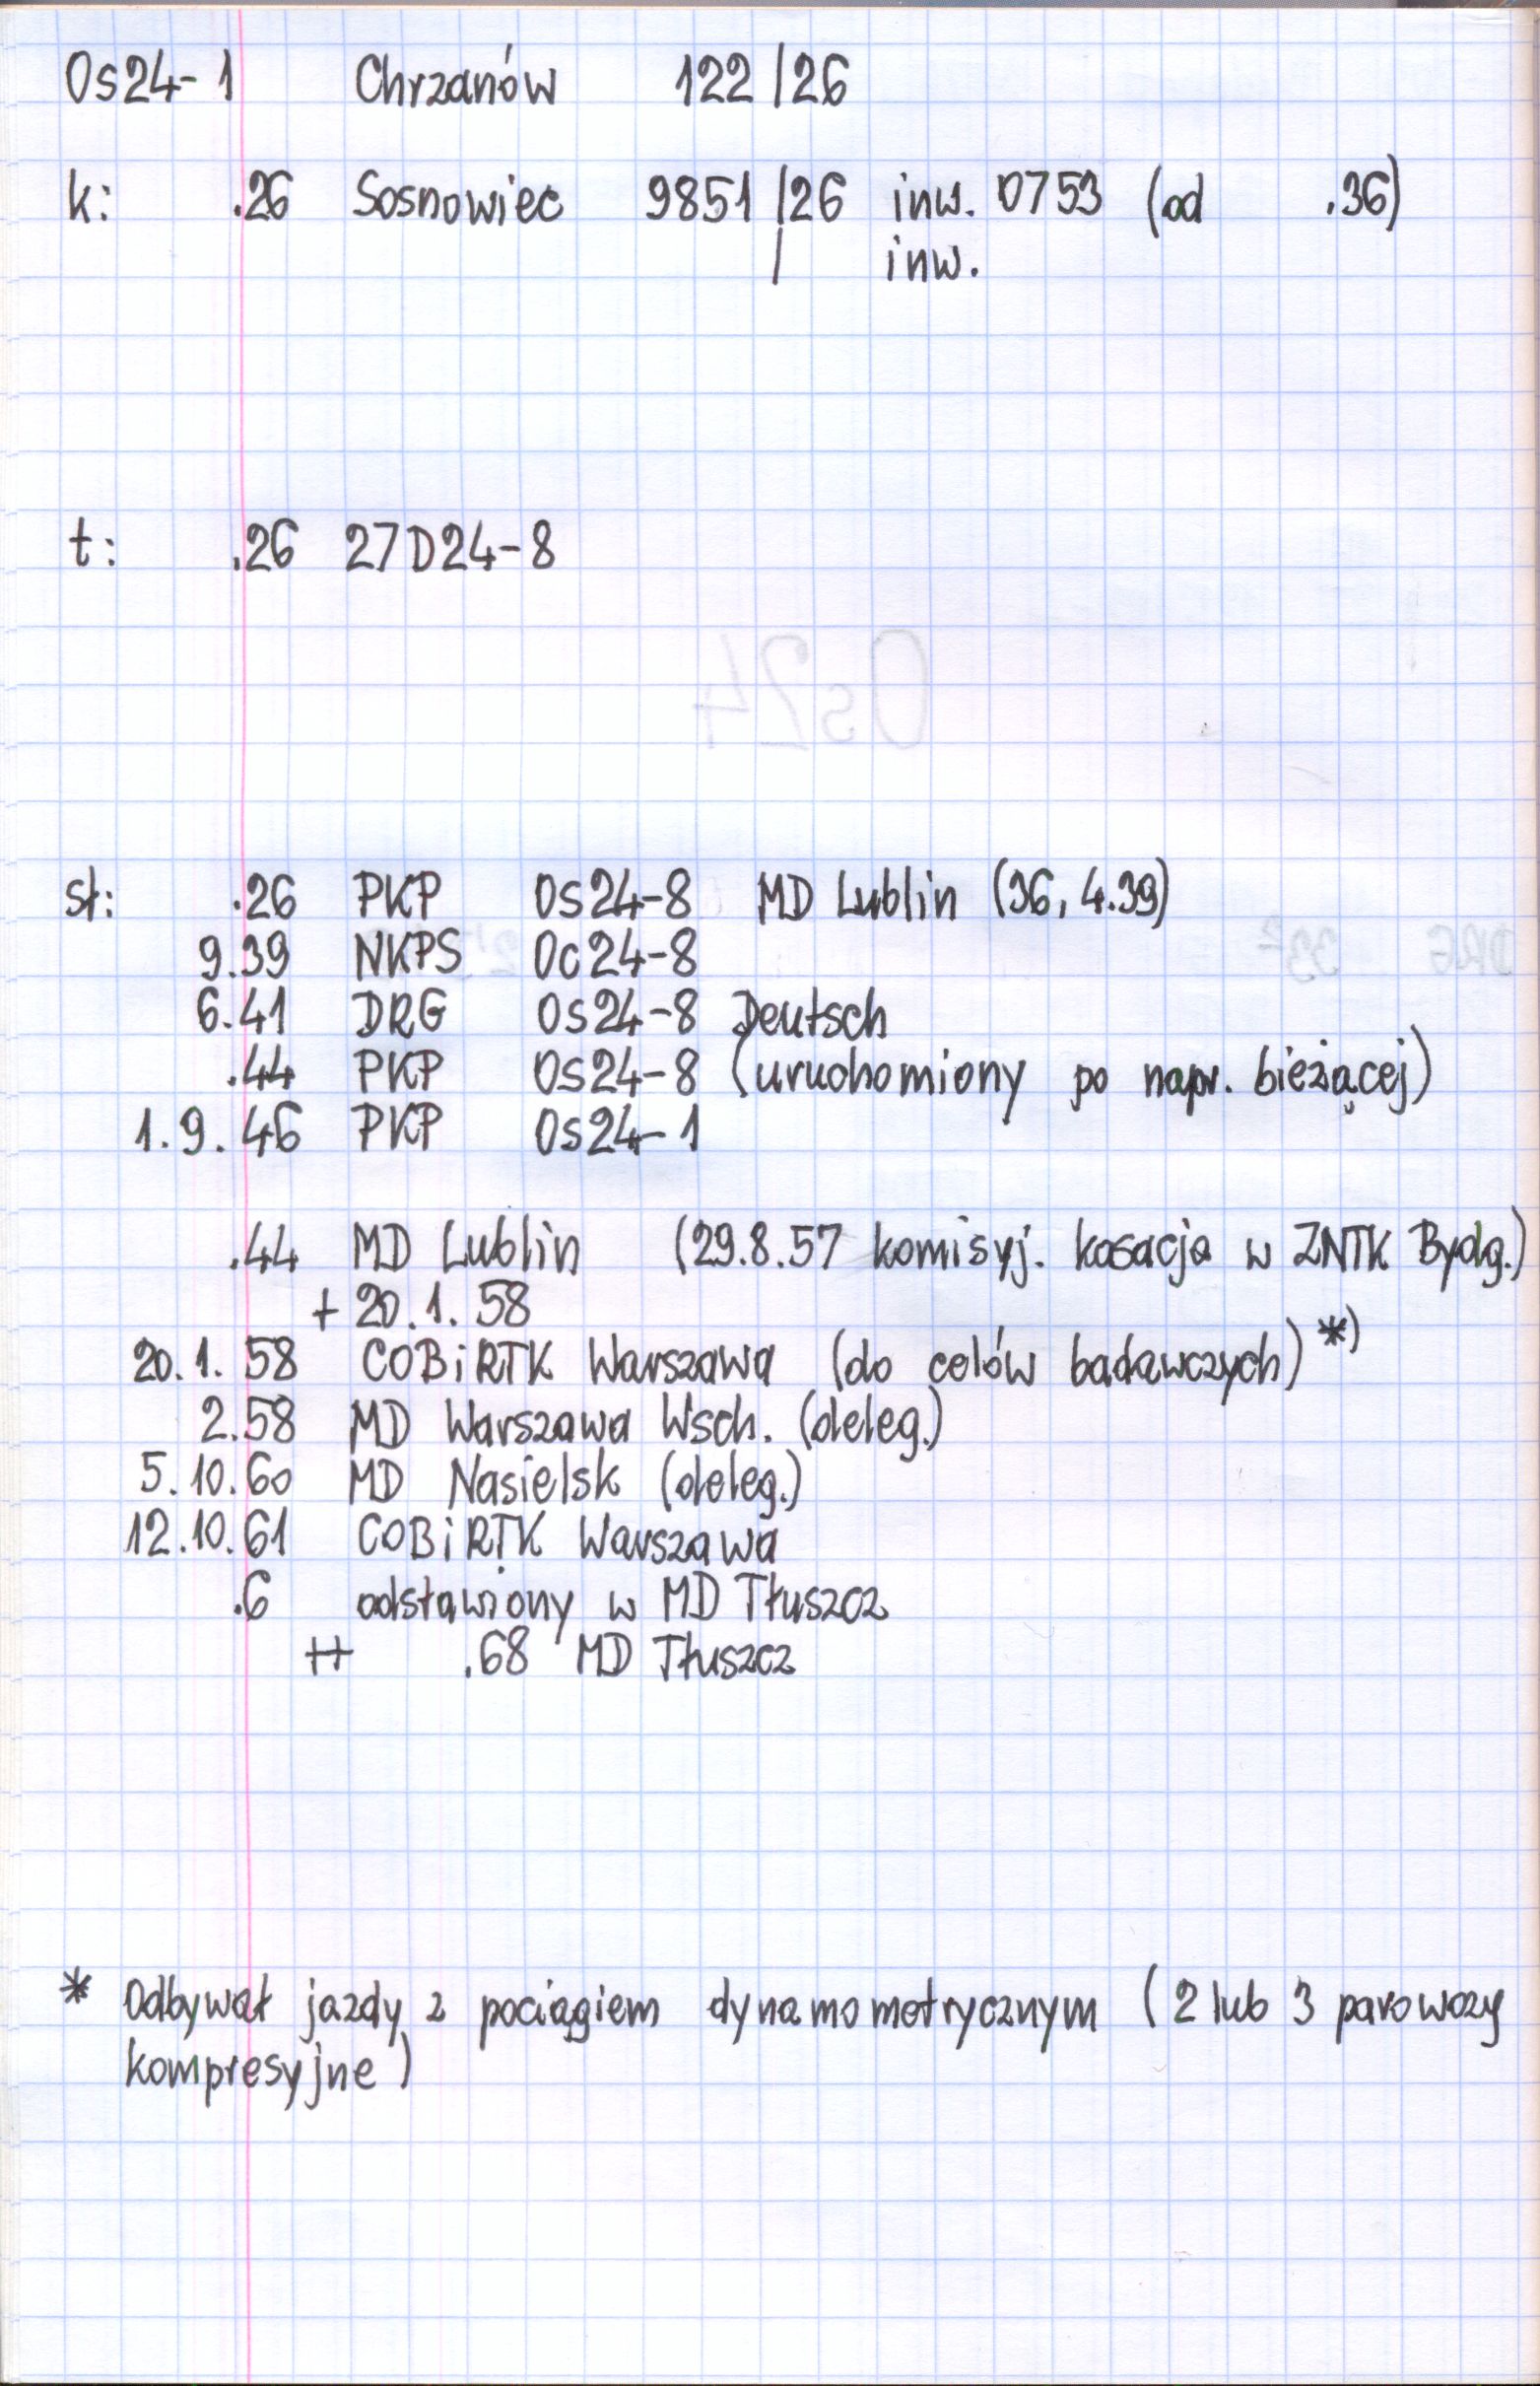 Os24-1 Chrzanów 122/26
k: .26 Sosnowiec 9851/26 inw. 0753 (od .36)
/ inw.
t: .26 27D24-8
sł: .26 PKP Os24-8 MD Lublin (36, 4.39)
9.39 NKPS Oc24-8
6.41 DRG Os24-8 Deutsch
.44 PKP Os24-8 (uruchomiony po napr. bieżącej)
1.9.46 PKP Os24-1
.44 MD Lublin (29.8.57 komisyj. kasacja w ZNTK Bydg.)
+ 20.1.58
20.1.58 COBiRTK Warszawa (do celów badawczych) *)
2.58 MD Warszawa Wsch. (deleg.)
5.10.60 MD Nasielsk (deleg.)
12.10.61 COBiRTK Warszawa
.6 odstawiony w MD Tłuszcz
++ .68 MD Tłuszcz
* Odbywał jazdy z pociągiem dynamometrycznym (2 lub 3 parowozy
kompresyjne)